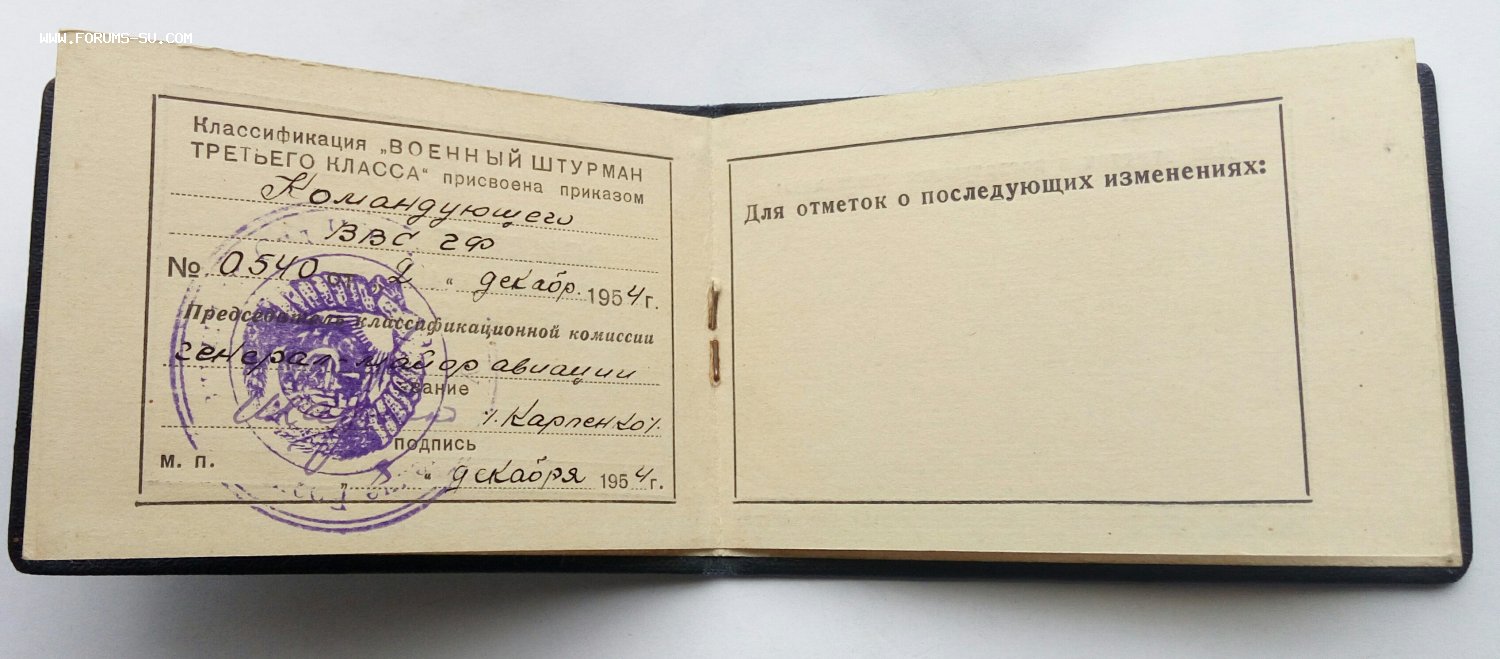 WWW.FORUMS-SU.COM
Классификация „ВОЕННЫЙ ШТУРМАН
ТРЕТЬЕГО КЛАССА“ присвоена приказом
Командующего
ВВС
№ 0540 от „2“ декабр. 1954 г.
Председатель классификационной комиссии
генерал-майор авиации
звание
/. Карпенко/.
подпись
М. П.
„ “ декабря 1954 г.
Для отметок о последующих изменениях: